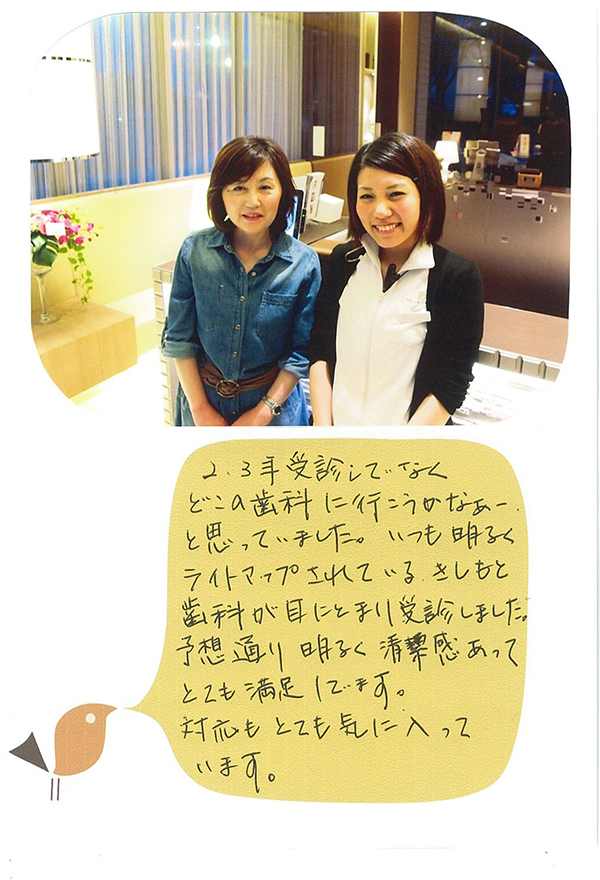 2、3年受診していなく
どこの歯科に行こうかなぁー、
と思っていました。いつも明るく
ライトアップされている、きしもと
歯科が目にとまり受診しました。
予想通り明るく清潔感あって
とても満足しています。
対応もとても気に入って
います。